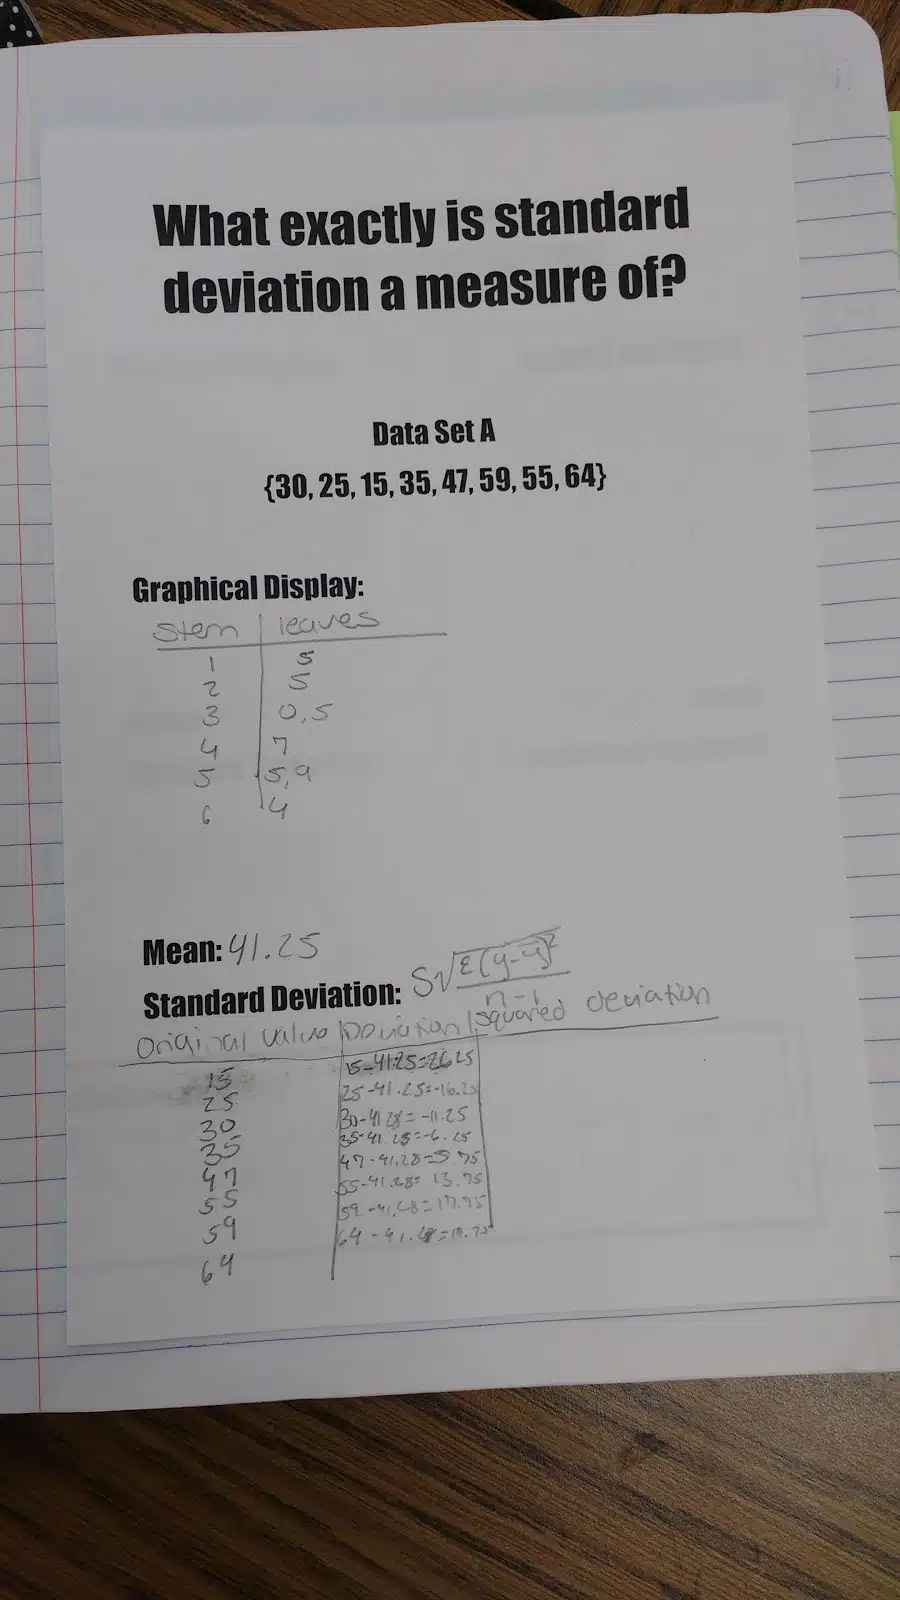 What exactly is standard
deviation a measure of?
Data Set A
{30, 25, 15, 35, 47, 59, 55, 64}
Graphical Display:
Stem | leaves
1 5
2 5
3 0,5
4 7
5 5,9
6 4
Mean: 41.25
Standard Deviation: S√Σ(y-ȳ)²
n-1
Original value | Deviation | squared deviation
15 15-41.25=26.25
25 25-41.25=-16.25
30 30-41.25=-11.25
35 35-41.25=-6.25
47 47-41.28=5.75
55 55-41.28=13.75
59 59-41.28=17.75
64 64-41.